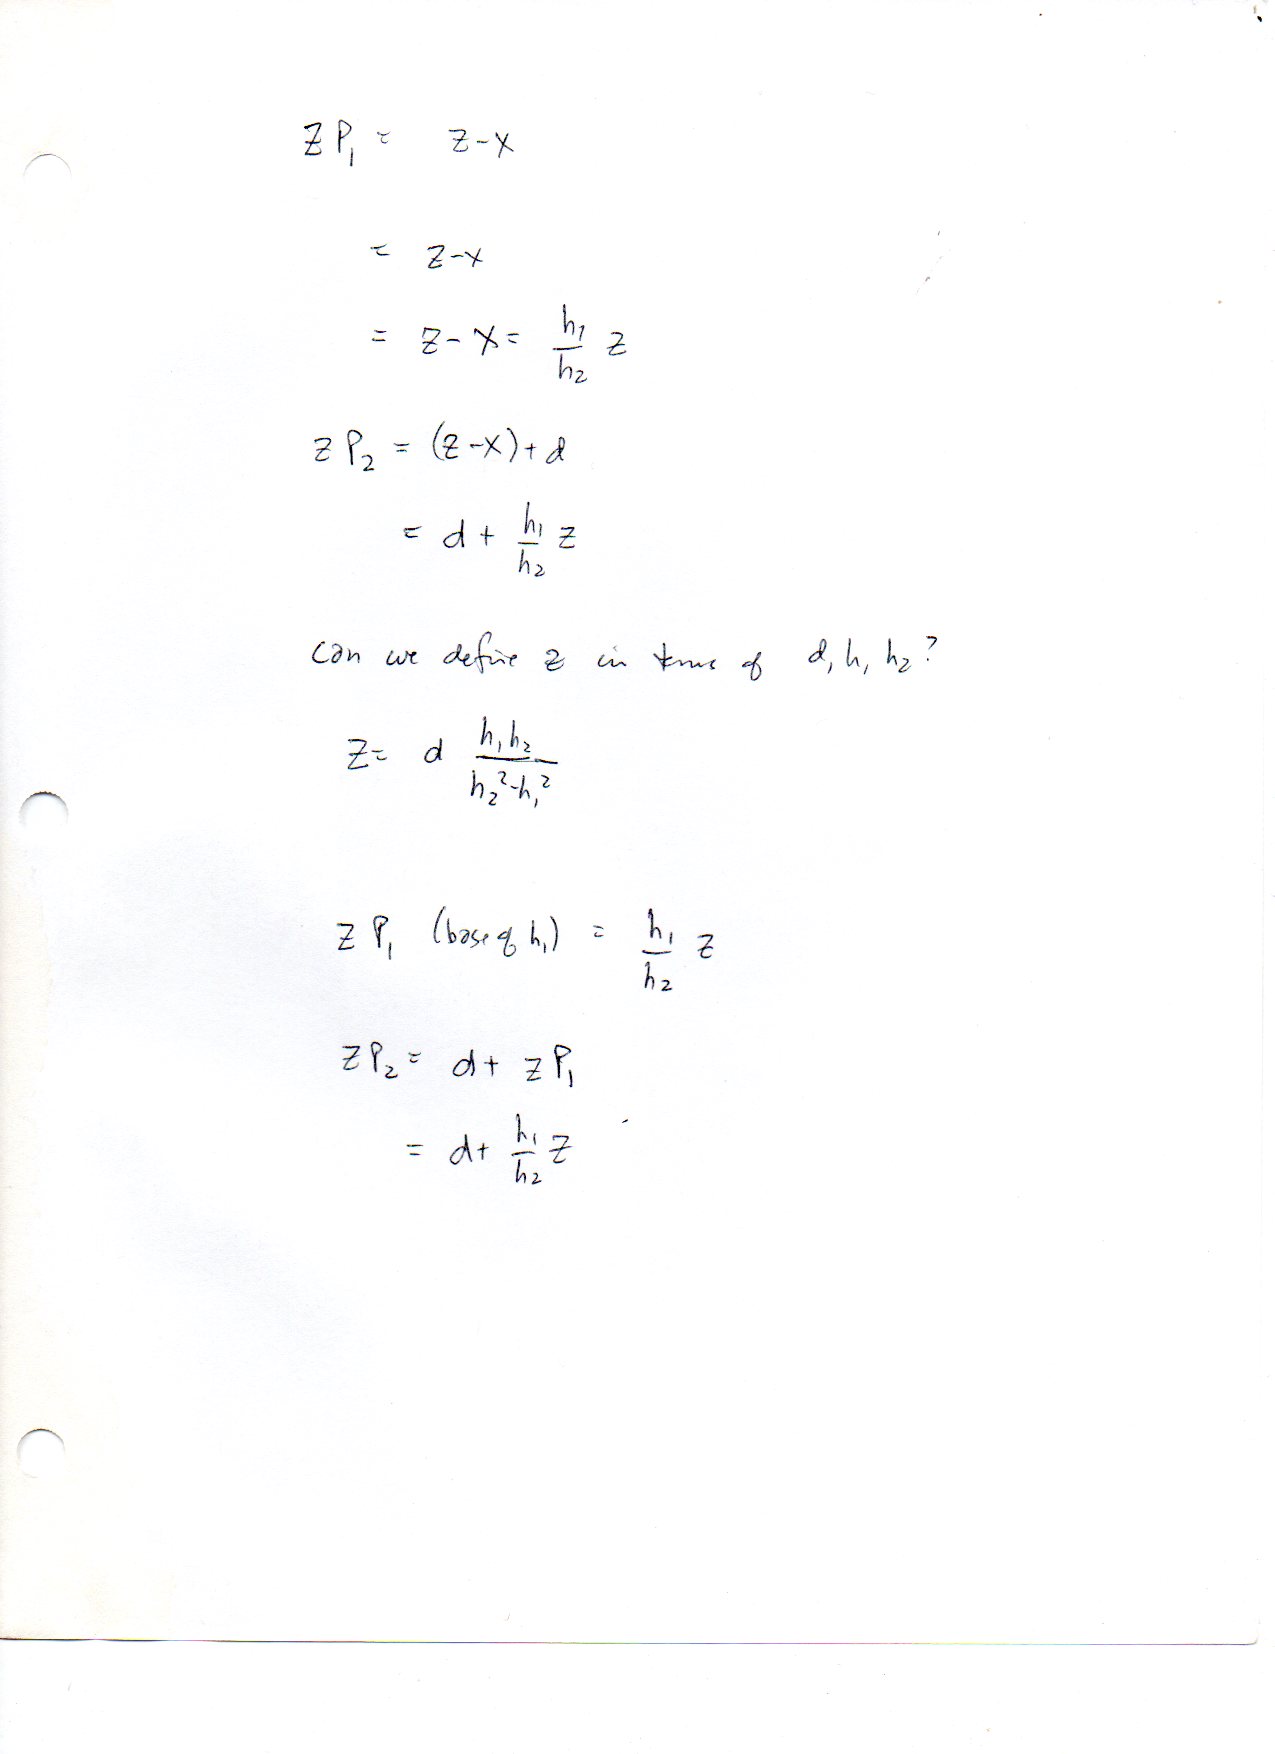 Z P₁ = z-x
= z-x
= z-x = h₁/h₂ z
z P₂ = (z-x)+d
= d + h₁/h₂ z
Can we define z in terms of d, h, h₂?
Z = d h₁h₂/(h₂²-h₁²)
Z P₁ (base of h₁) = h₁/h₂ z
Z P₂ = d + z P₁
= d + h₁/h₂ z